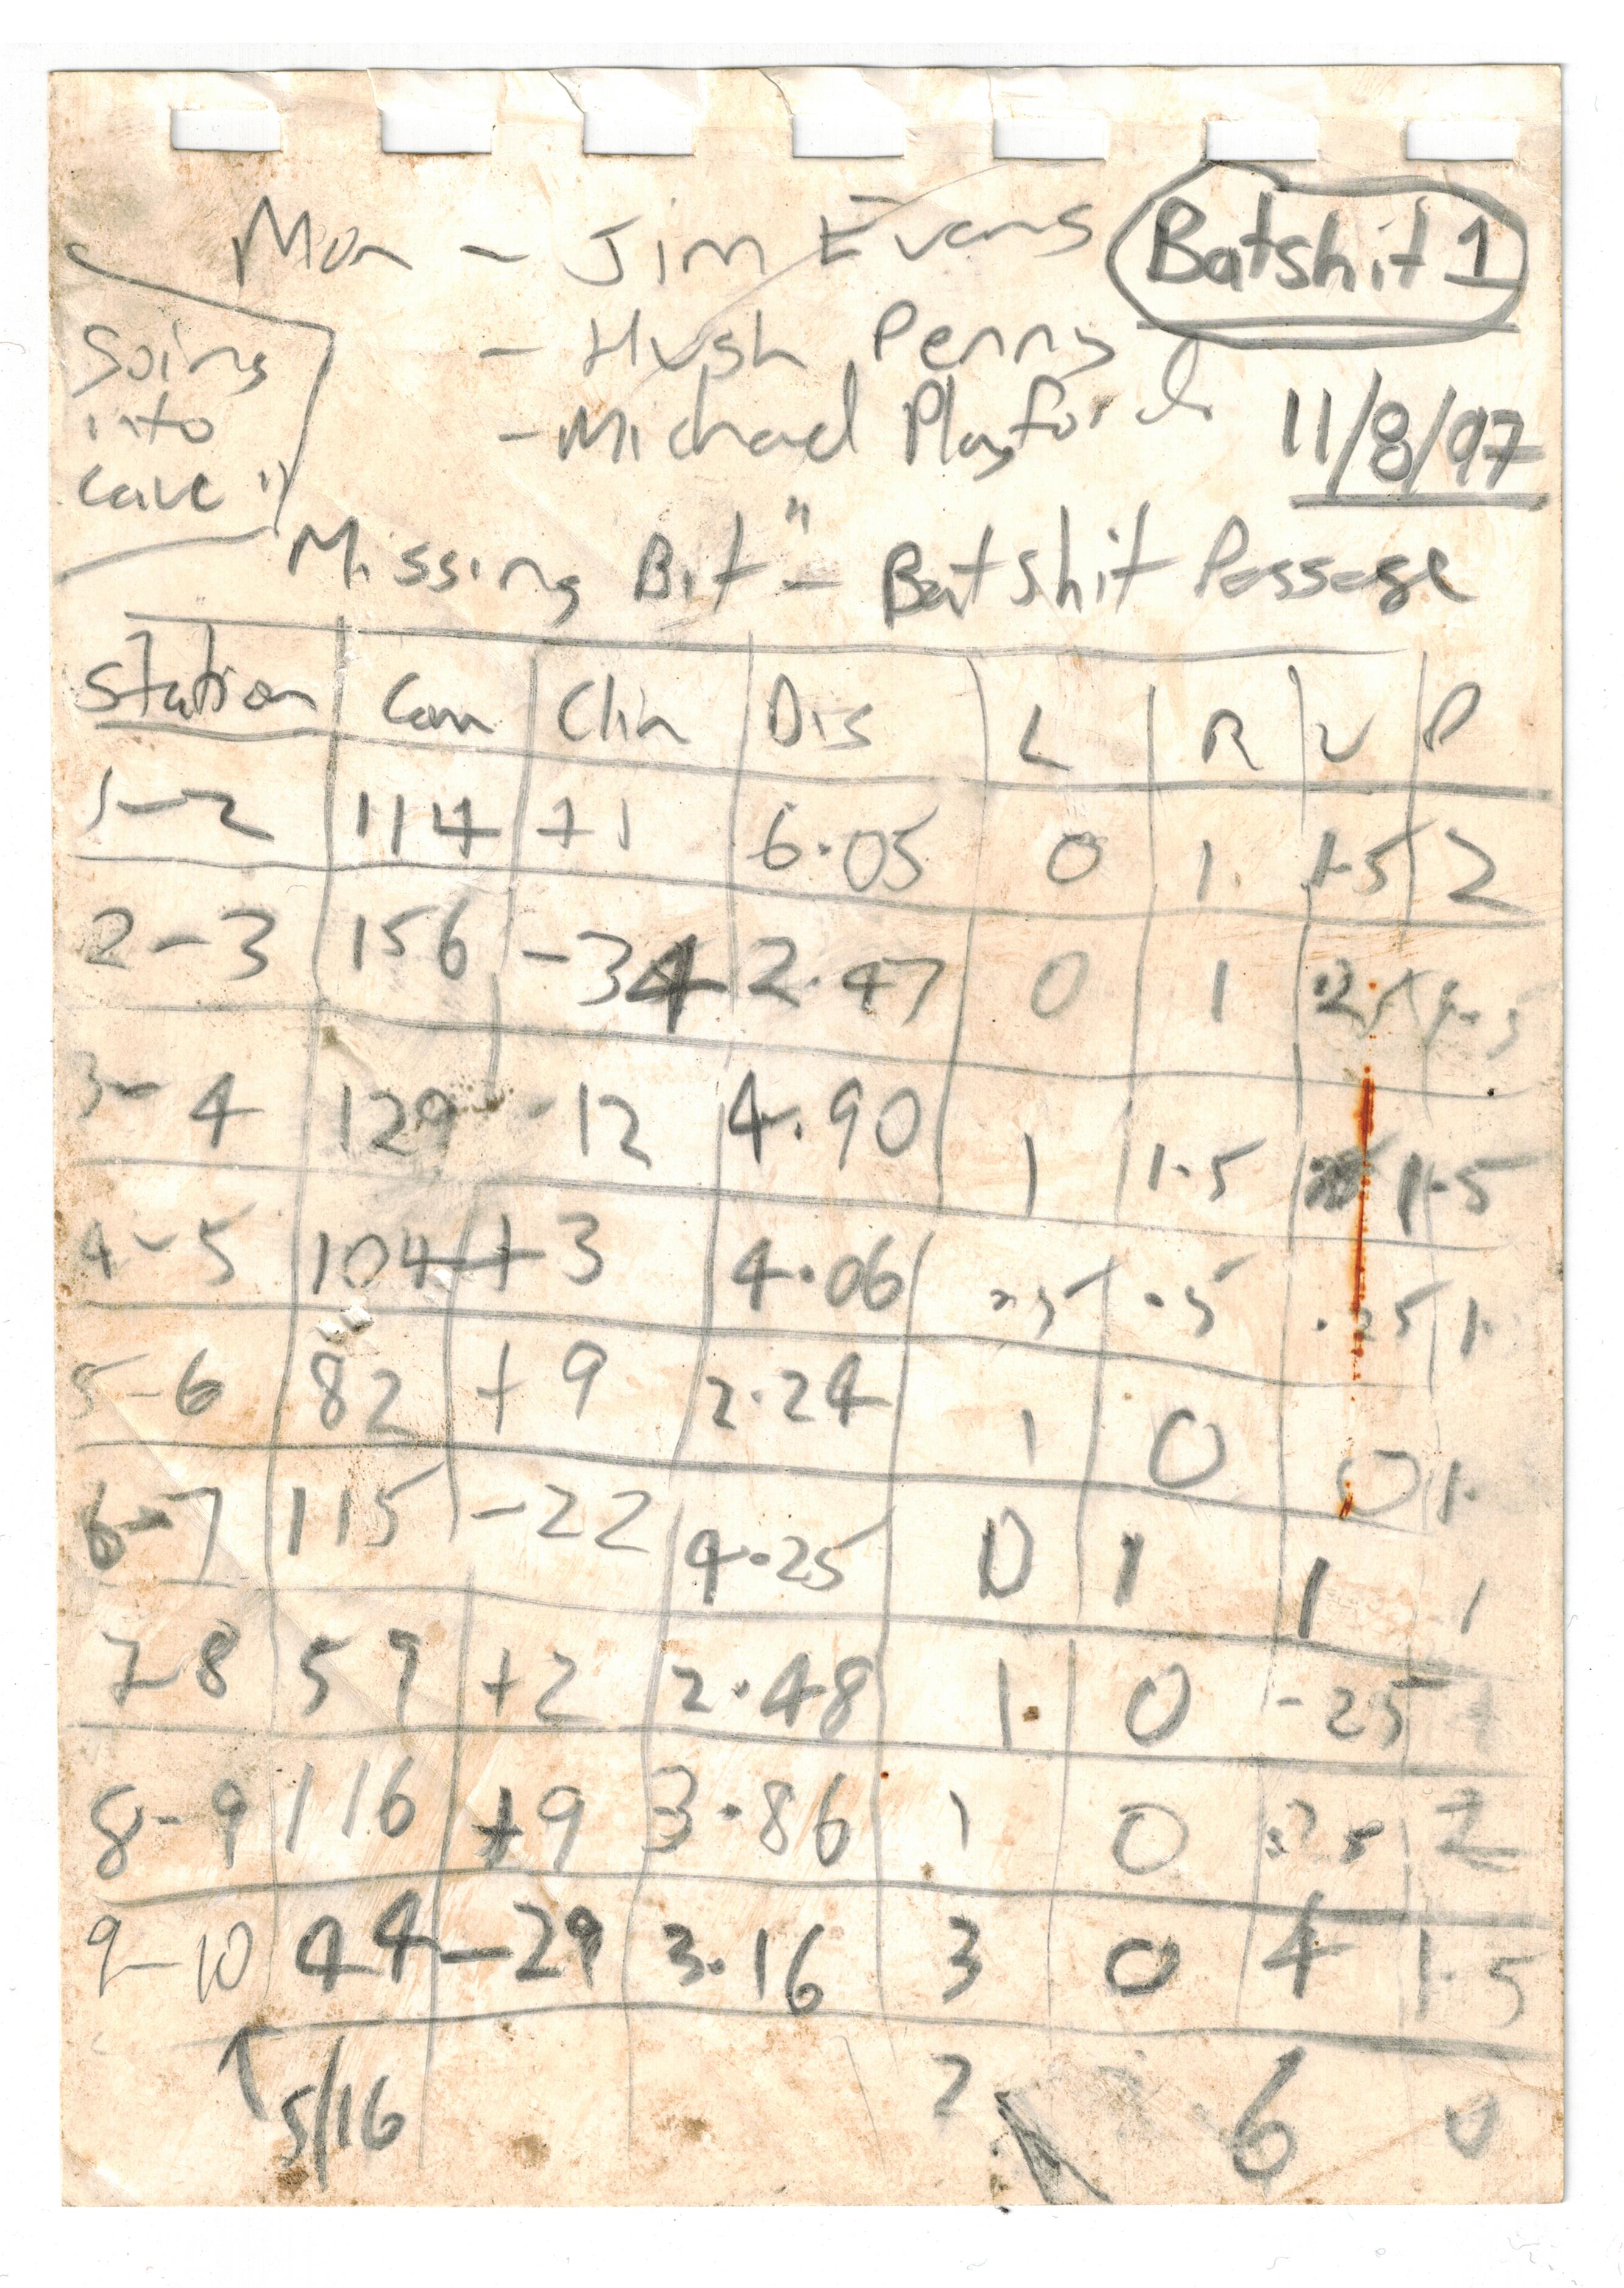 Mon - Jim Evans
Batshit 1
- Hugh Penny
- Michael Playford
11/8/97
Going
into
cave
"Missing Bit" - Batshit Passage
Station Com Clin Dis L R U D
1-2 114 +1 6.05 0 1 1.5 2
2-3 156 -34 2.47 0 1
3-4 129 -12 4.90 1 1.5 1.5
4-5 104 +3 4.06 .5 .25 1
5-6 82 +9 2.24 1 0 0 1
6-7 115 -22 4.25 0 1 1 1
7-8 59 +2 2.48 1 0 .25
8-9 116 +9 3.86 1 0 .25 2
9-10 44 -29 3.16 3 0 4 1.5
5/16 2 6 0